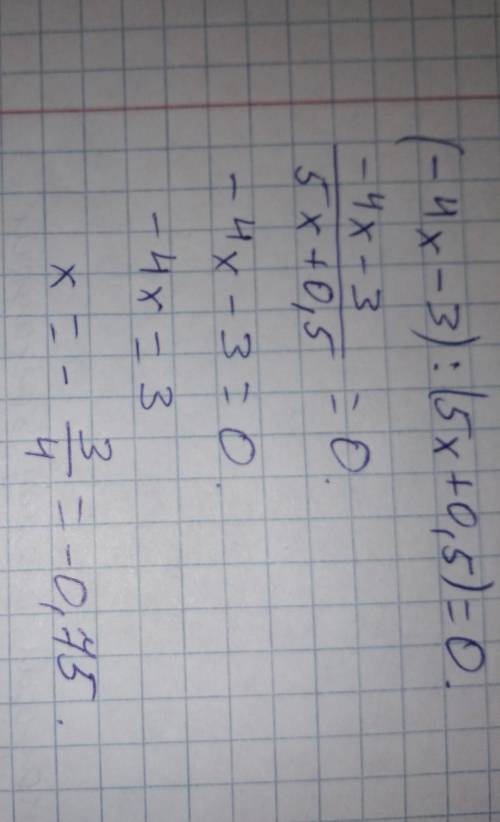 (-4x-3):(5x+0,5)=0.
-4x-3
5x+0,5 = 0.
-4x-3=0.
-4x=3
x=-3/4=-0,75.